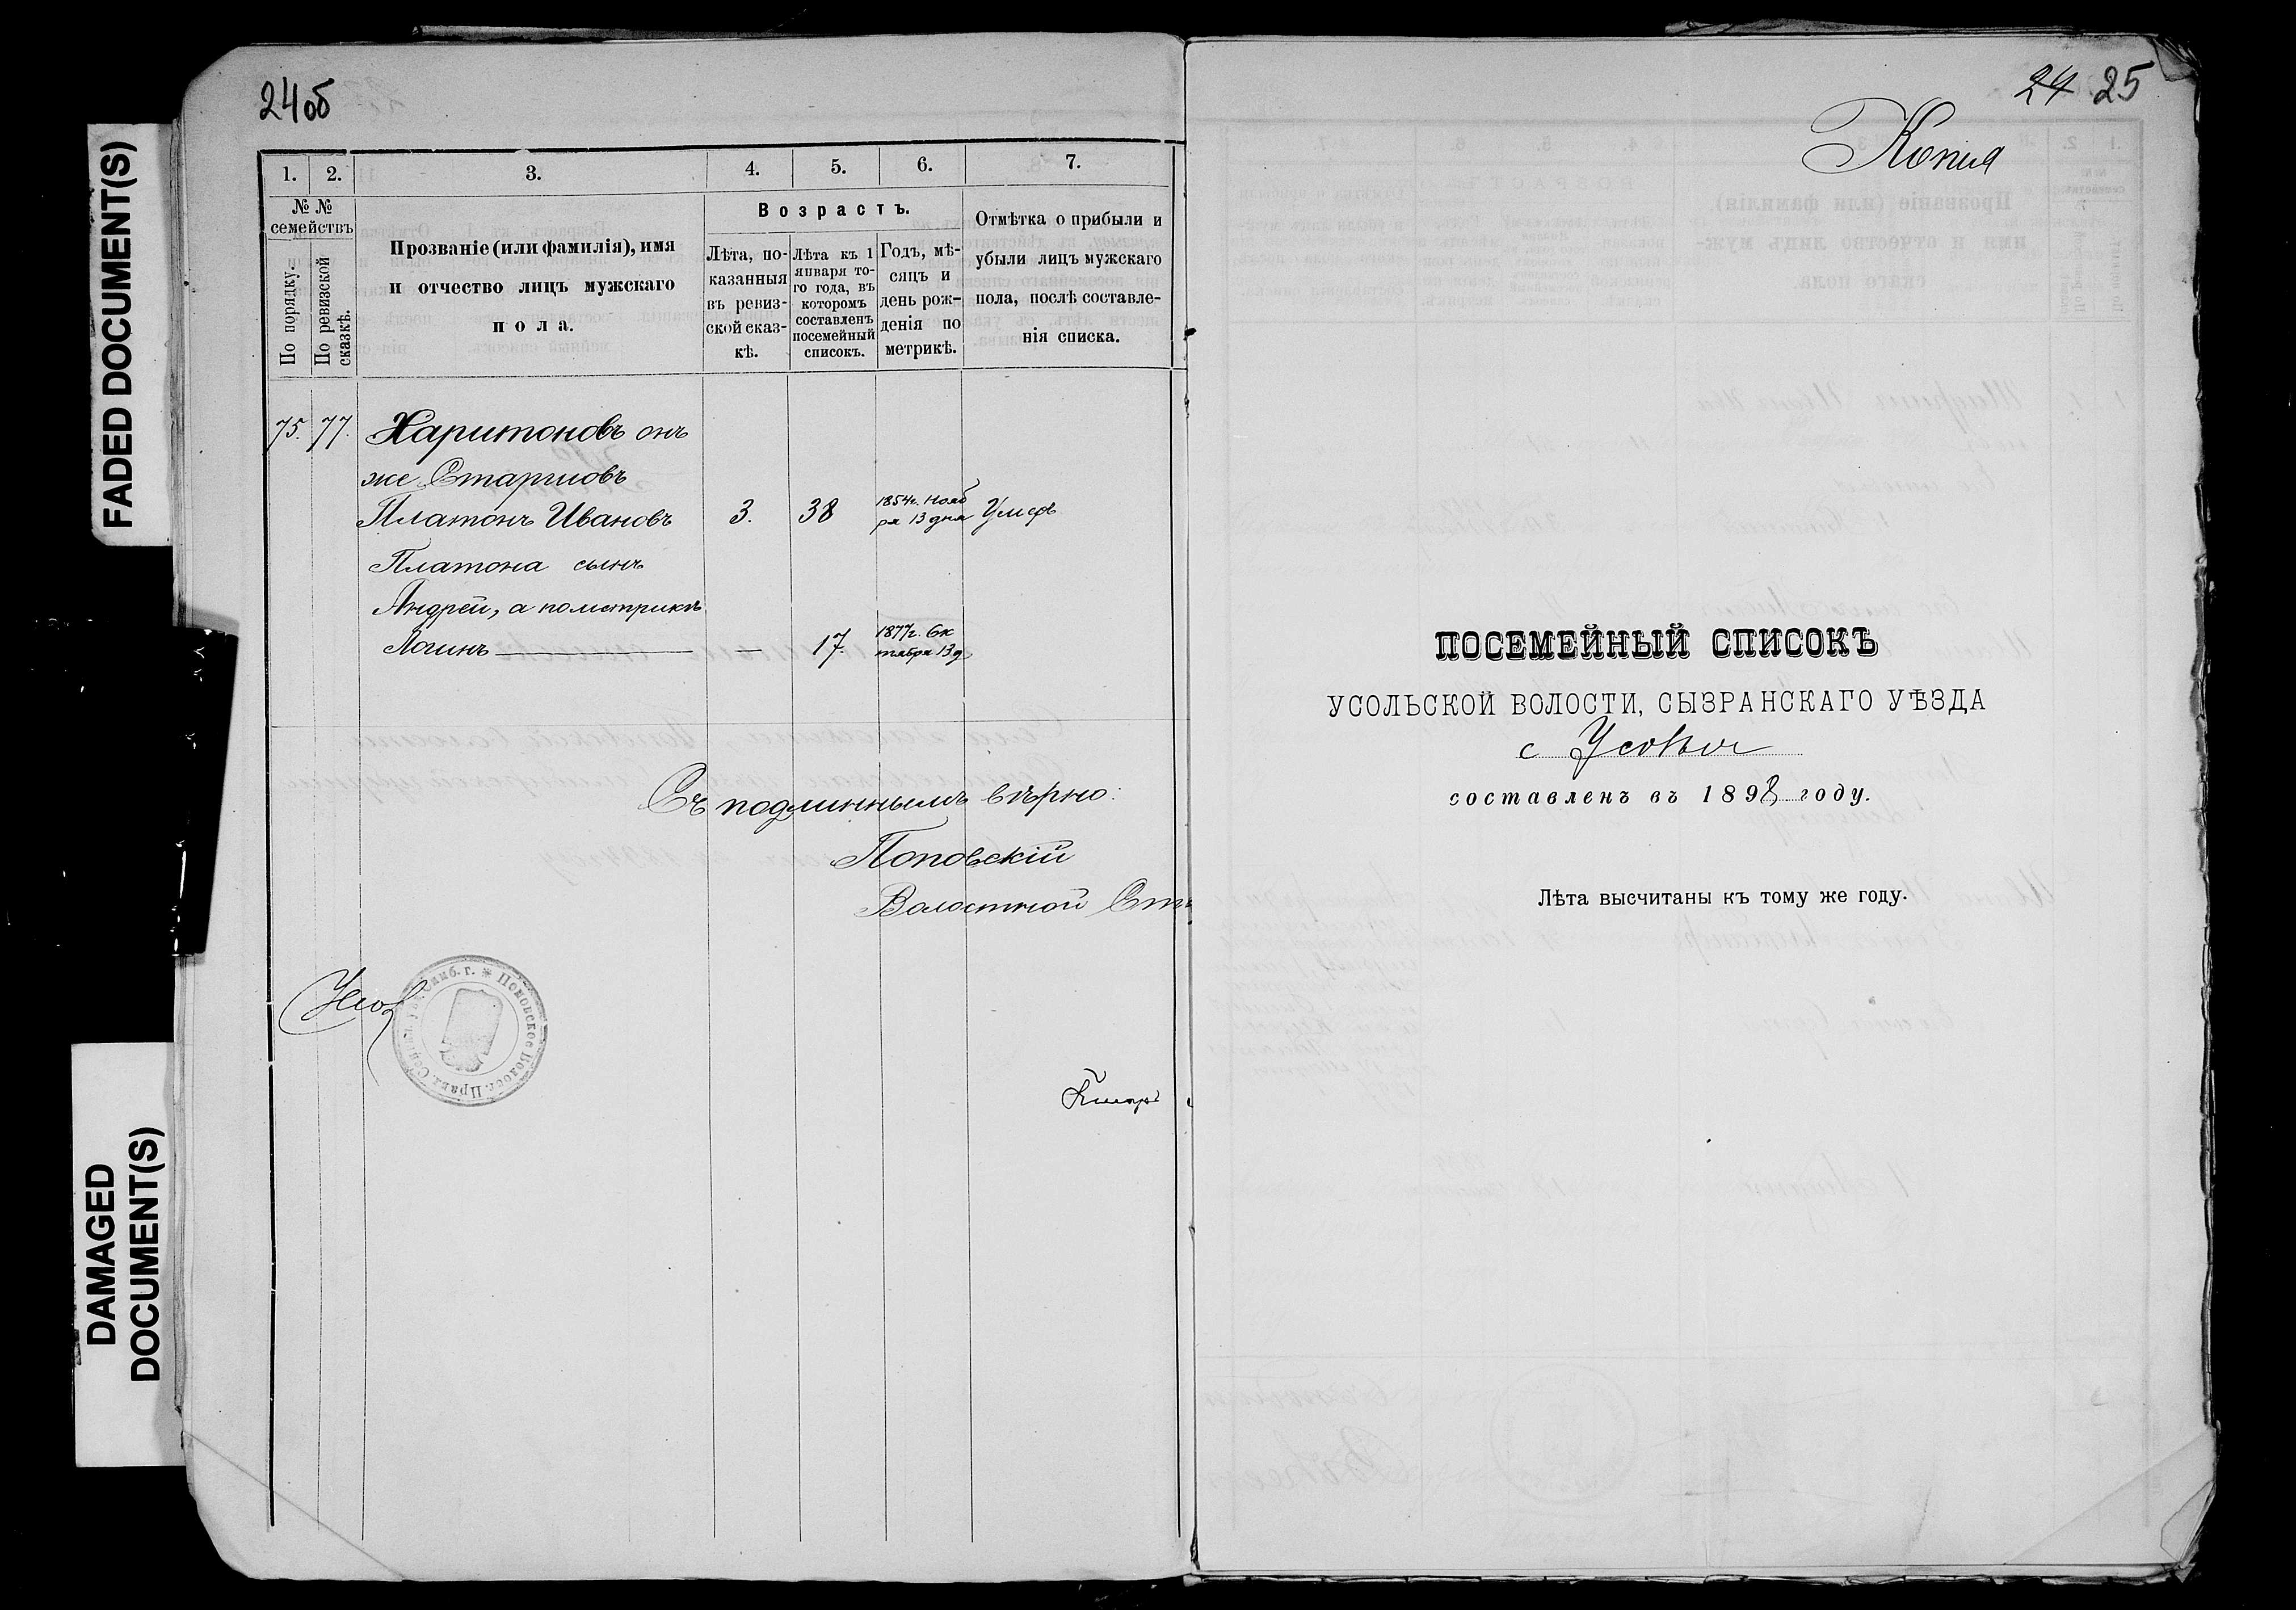 FADED DOCUMENT(S)
DAMAGED
DOCUMENT(S)
24об
1. 2. 3. 4. 5. 6. 7.
№ №
семействъ
По порядку.
По ревизской
сказкѣ.
Прозваніе (или фамилія), имя
и отчество лицъ мужскаго
пола.
Возрастъ.
Лѣта, по-
казанныя
въ ревиз-
ской сказ-
кѣ.
Лѣта къ 1
января то-
го года, въ
которомъ
составленъ
посемейный
списокъ.
Годъ, мѣ-
сяцъ и
день рож-
денія по
метрикѣ.
Отмѣтка о прибыли и
убыли лицъ мужскаго
пола, послѣ составле-
нія списка.
75. 77. Харитоновъ онъ
же Старшовъ
Платонъ Ивановъ 3. 38 1854г. Нояб
ря 13 дня Умеръ
Платона сынъ
Андрей, а пометрикѣ
Логинъ — — 17. 1877г. Ок
тября 13 д
Съ подлиннымъ вѣрно:
Поповскій
Волостной Ст
Поповское Волост. Правл.
24 25
Копия
ПОСЕМЕЙНЫЙ СПИСОКЪ
УСОЛЬСКОЙ ВОЛОСТИ, СЫЗРАНСКАГО УѢЗДА
с Усолья
составленъ въ 1898 году.
Лѣта высчитаны къ тому же году.